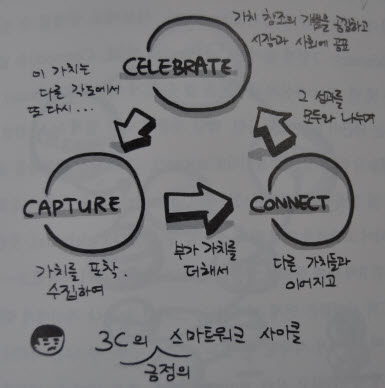 가치 창조의 개별을 공감하고
시장과 사회에 공표
CELEBRATE
이 가치는
다른 각도에서
또 다시...
그 성과를
모두와 나누며
CAPTURE
CONNECT
가치를 포착.
수집하여
부가 가치를
더해서
다른 가치들과
이어지고
3C의 스마트워크 사이클
긍정의